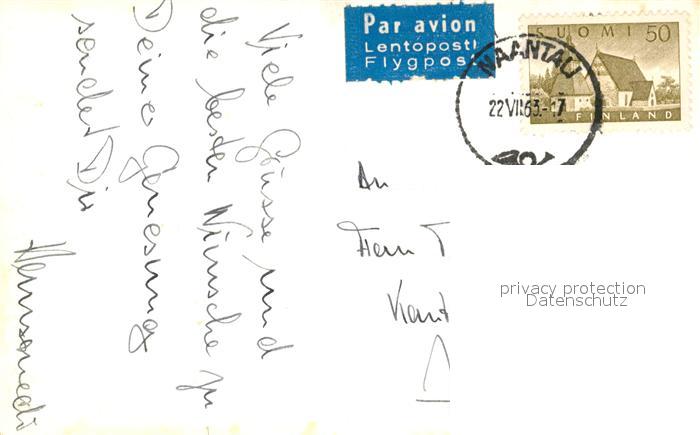 Viele Grüsse und
die besten Wünsche zu
Deiner Genesung
sendet Dir
Par avion
Lentoposti
Flygpost
SUOMI 50
FINLAND
NAANTALI
22.VII.63.-17
An
Herrn
privacy protection
Datenschutz